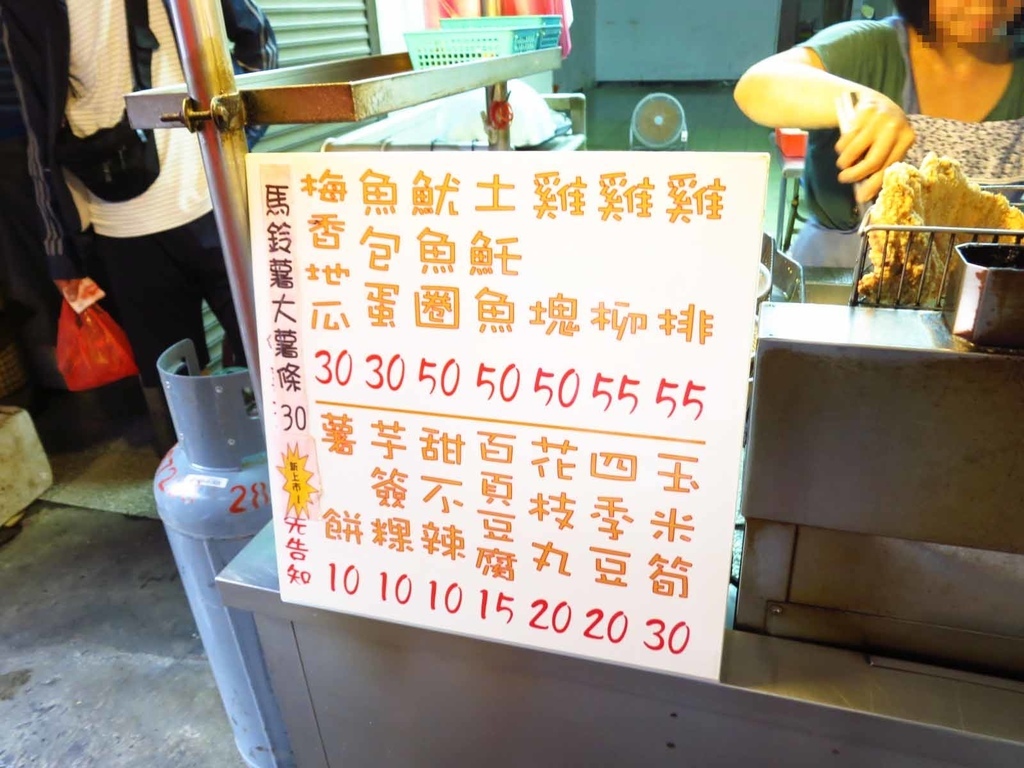 雞排 55
雞柳 55
雞塊 50
土魠魚 50
魷魚圈 50
魚包蛋 30
梅香地瓜 30
玉米筍 30
四季豆 20
花枝丸 20
百頁豆腐 15
甜不辣 10
芋簽粿 10
薯餅 10
馬鈴薯大薯條30
新上市!
先告知
28